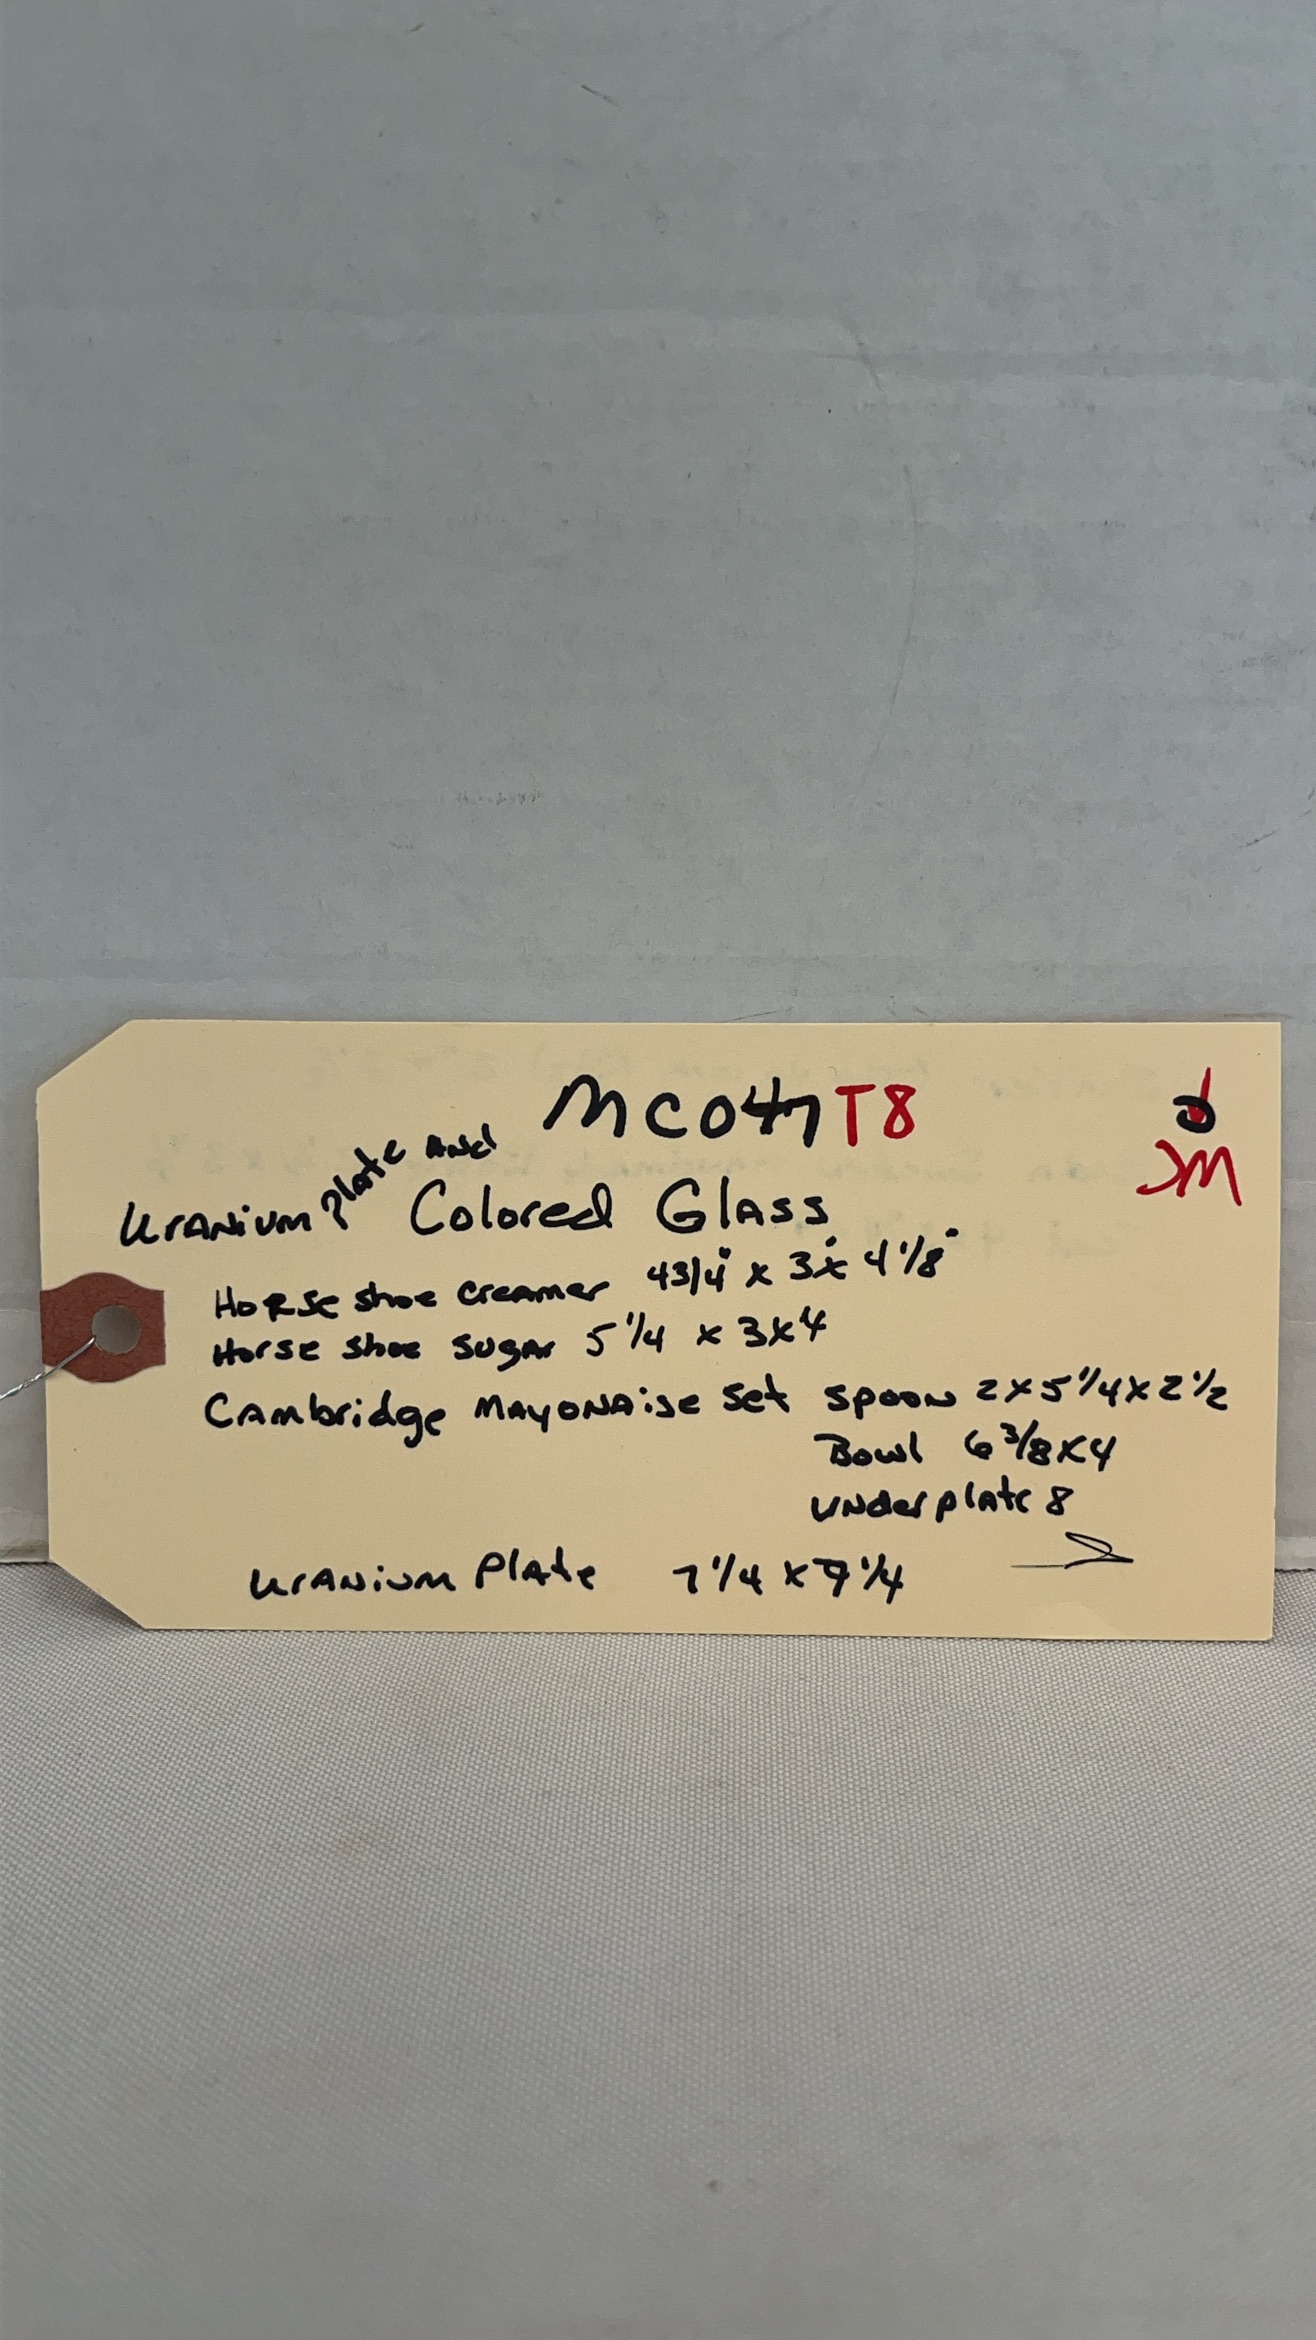 MC047 T8
Uranium Plate and
Colored Glass
Horse shoe creamer 4 3/4" x 3" x 4 1/8"
Horse shoe sugar 5 1/4 x 3 x 4
Cambridge Mayonaise set spoon 2 x 5 1/4 x 2 1/2
Bowl 6 3/8 x 4
underplate 8
Uranium Plate 7 1/4 x 7 1/4